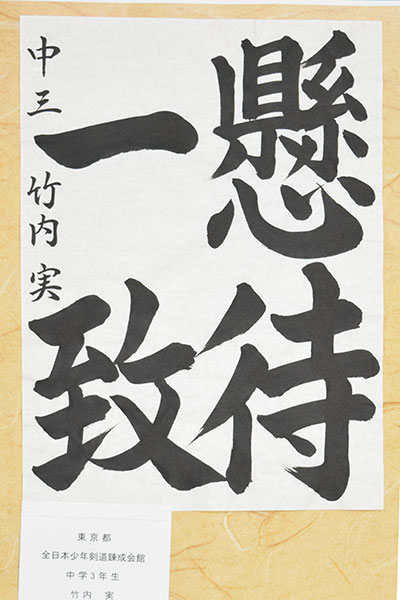 懸待
一致
中三 竹内 実
東京都
全日本少年剣道錬成会館
中学3年生
竹内 実